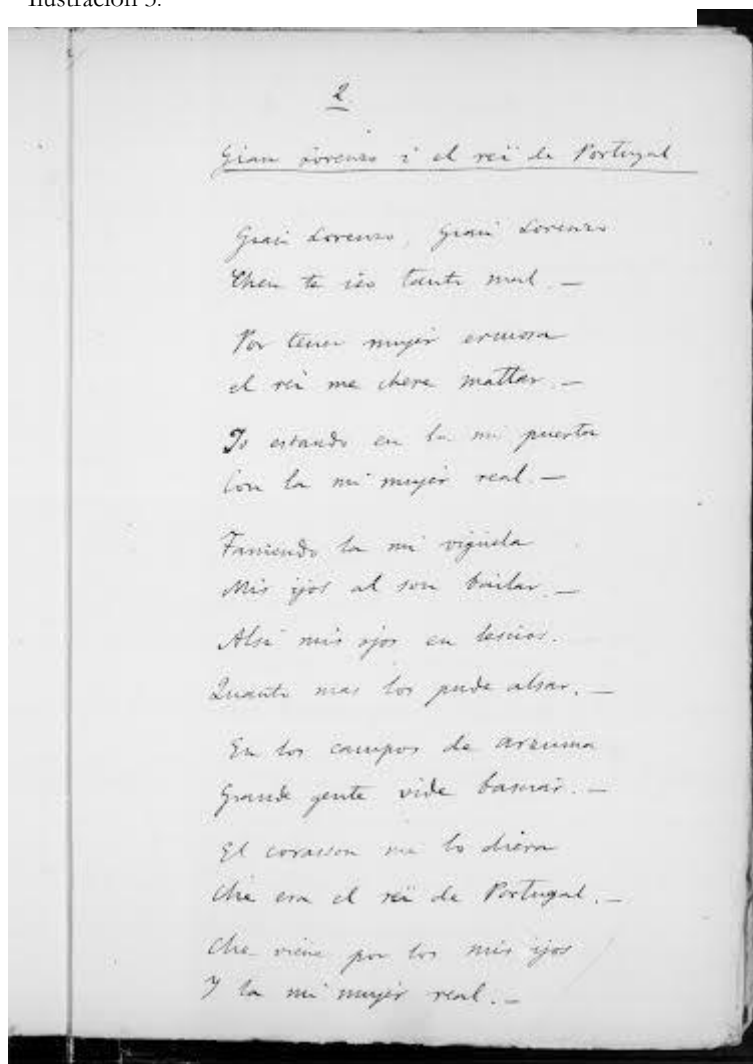 Ilustración 3.
2
Gian Lorenzo i el reï de Portugal
Gian Lorenzo, Gian Lorenzo
Chen te iso tanto mal. —
Por tener mujer ermosa
el reï me chere mattar. —
Io estando en la mi puerta
Con la mi mujer real —
Taniendo la mi vigüela
Mis ijos al son bailar. —
Alsi mis ojos en
Quanto mas los pude alsar. —
En los campos de arzuma
Grande gente vide
El corasson me lo diera
Che era el reï de Portugal. —
Che viene por los mis ijos
Y la mi mujer real. —